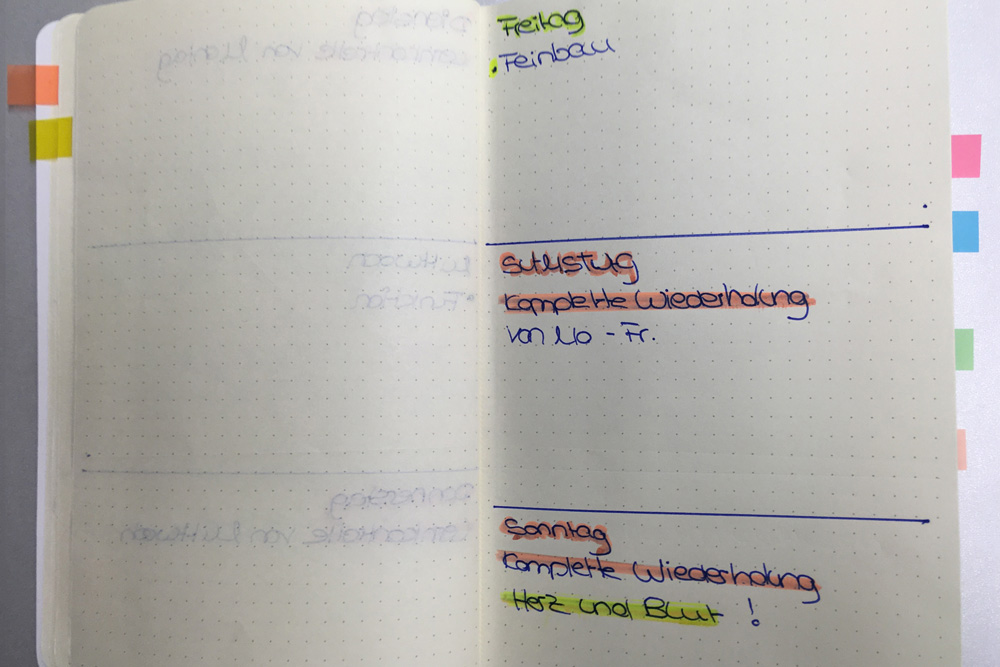 Freitag
• Feinbau
Samstag
Komplette Wiederholung
von Mo - Fr.
Sonntag
Komplette Wiederholung
Herz und Blut !